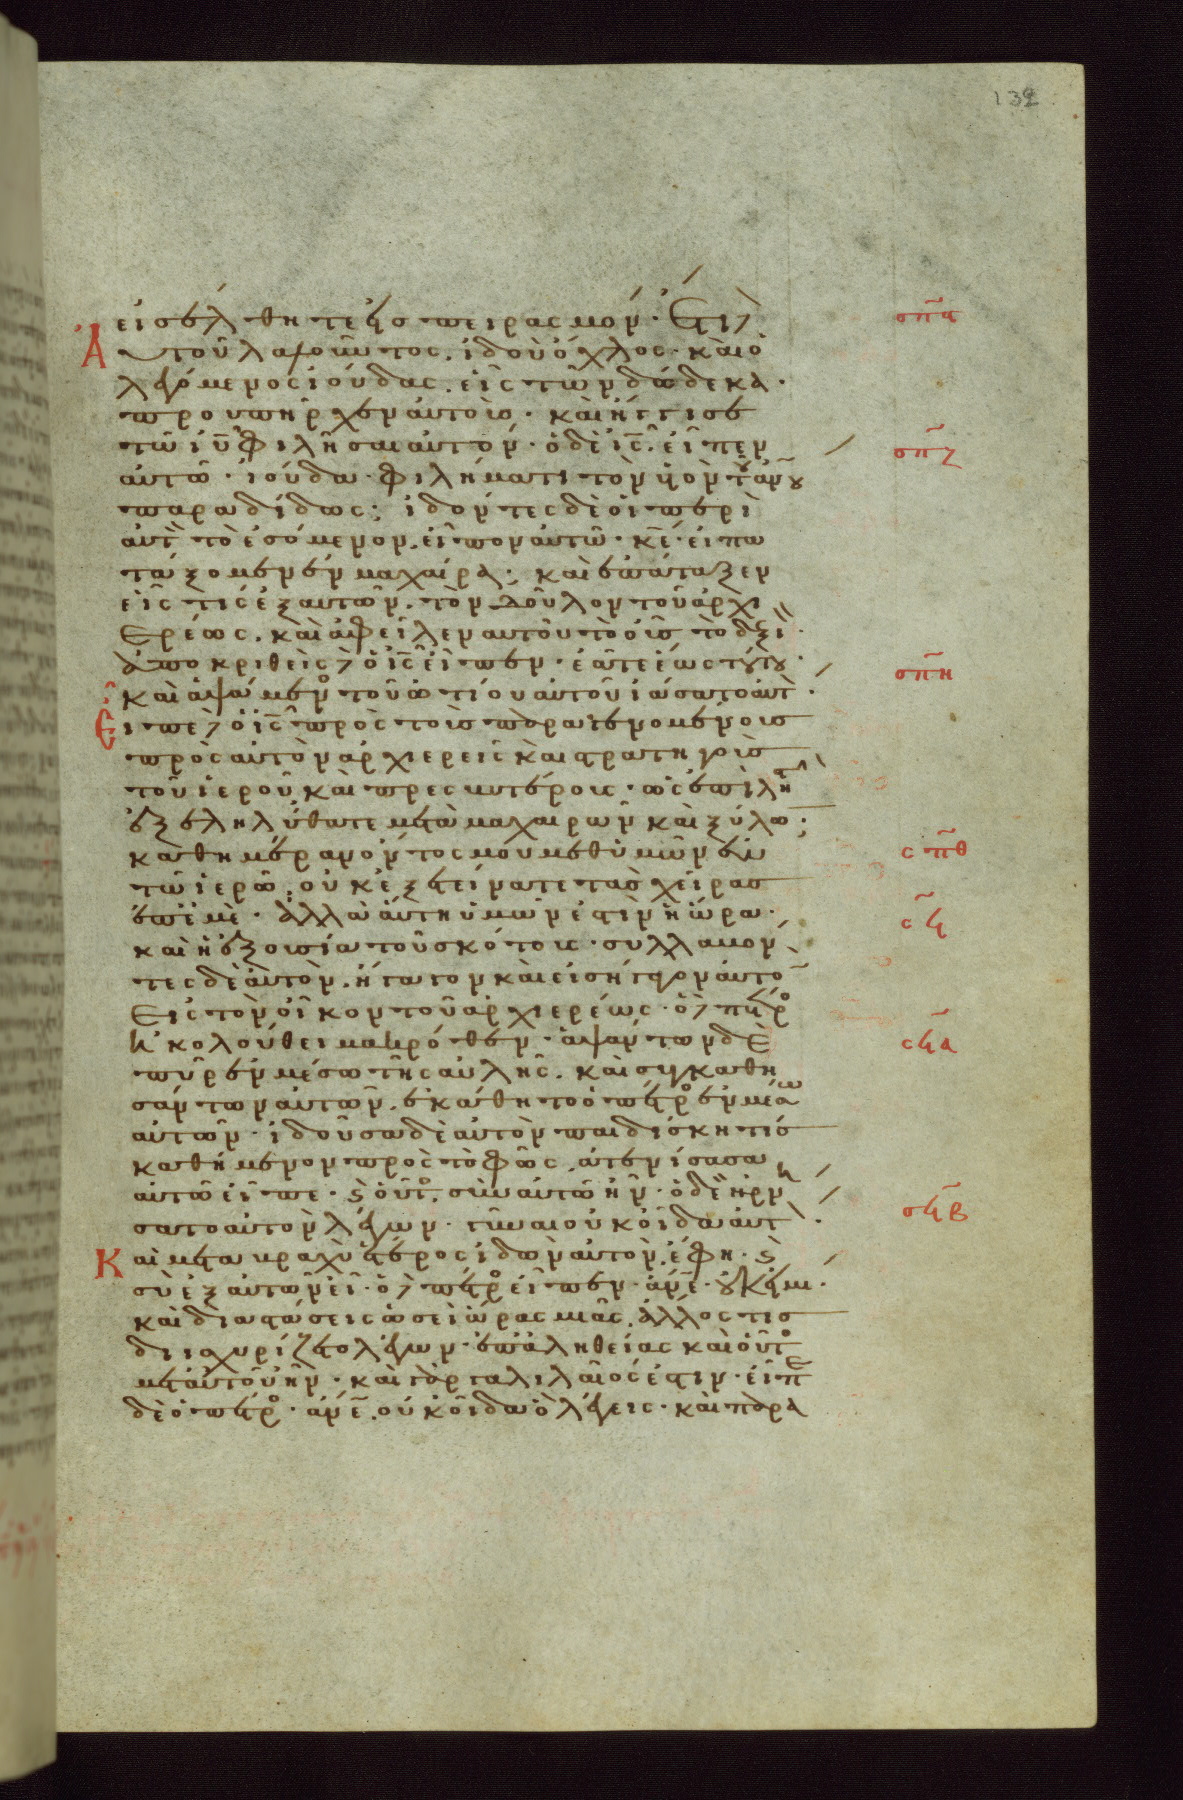 132
εἰσέλθητε εἰς πειρασμόν· Ἔτι δὲ
αὐτοῦ λαλοῦντος, ἰδοὺ ὄχλος· καὶ ὁ
λεγόμενος ἰούδας, εἷς τῶν δώδεκα·
προυπῆρχεν αὐτοῖς· καὶ ἤγγισε
τῶ ἰῦ φιλῆσαι αὐτόν· ὁ δὲ ἰς̅ εἶπεν
αὐτῶ· ἰούδα φιλήματι τὸν υἱὸν τοῦ ἀνου
παραδίδως; ἰδόντες δὲ οἱ περὶ
αὐτὸν τὸ ἐσόμενον, εἶπον αὐτῶ· κε̅· εἰ πα
τάξομεν ἐν μαχαίρα; καὶ ἐπάταξεν
εἷς τίς ἐξ αὐτῶν, τὸν δοῦλον τοῦ ἀρχι
Ερέως, καὶ ἀφεῖλεν αὐτοῦ τὸ οὖς τὸ δεξιόν·
ἀποκριθεὶς δὲ ὁ ἰς̅ εἶπεν· ἐᾶτε ἕως τούτου·
καὶ ἁψάμενος τοῦ ὠτίου αὐτοῦ ἰάσατο αὐτόν·
Εἶπε δὲ ὁ ἰς̅ πρὸς τοὺς παραγενομένους
πρὸς αὐτὸν ἀρχιερεῖς καὶ στρατηγοὺς
τοῦ ἱεροῦ καὶ πρεσβυτέρους· ὡς ἐπὶ λῃστὴν
ἐξεληλύθατε μετὰ μαχαιρῶν καὶ ξύλων;
καθημέραν ὄντος μου μεθ᾽ ὑμῶν ἐν
τῶ ἱερῶ, οὐκ ἐξετείνατε τὰς χεῖρας
ἐπ᾽ ἐμέ· ἀλλ᾽ αὕτη ὑμῶν ἐστὶν ἡ ὥρα·
καὶ ἡ ἐξουσία τοῦ σκότους· συλλαβόν
τες δὲ αὐτὸν, ἤγαγον καὶ εἰσήγαγον αὐτὸν
Εἰς τὸν οἶκον τοῦ ἀρχιερέως· ὁ δὲ πέτρος
ἠκολούθει μακρόθεν· ἁψάντων δὲ
πῦρ ἐν μέσω τῆς αὐλῆς, καὶ συγκαθι
σάντων αὐτῶν, ἐκάθητο ὁ πέτρος ἐν μέσω
αὐτῶν· ἰδοῦσα δὲ αὐτὸν παιδίσκη τίς
καθήμενον πρὸς τὸ φῶς, ἀτενίσασα
αὐτῶ εἶπε· καὶ οὗτος σὺν αὐτῶ ἦν· ὁ δὲ ἠρνή
σατο αὐτὸν λέγων· γύναι οὐκ οἶδα αὐτόν·
Καὶ μετὰ βραχὺ ἕτερος ἰδὼν αὐτὸν, ἔφη· καὶ
σὺ ἐξ αὐτῶν εἶ· ὁ δὲ πέτρος εἶπεν· ἄνε̅· οὐκ εἰμί·
καὶ διαστάσεις ὡσεὶ ὥρας μιᾶς, ἄλλος τις
διισχυρίζετο λέγων· ἐπ᾽ ἀληθείας καὶ οὗτος
μετ᾽ αὐτοῦ ἦν· καὶ γὰρ γαλιλαῖος ἐστιν· εἶπε
δὲ ὁ πέτρος· ἄνε̅, οὐκ οἶδα ὃ λέγεις· καὶ παρα
σπς
σπζ
σπη
σπθ
σϟ
σϟα
σϟβ